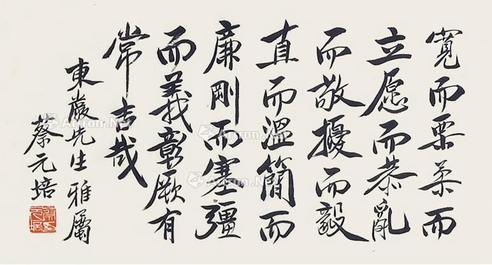 寬而栗柔而
立愿而恭亂
而敬擾而毅
直而溫簡而
廉剛而塞彊
而義彰厥有
常吉哉
東嚴先生雅屬
蔡元培